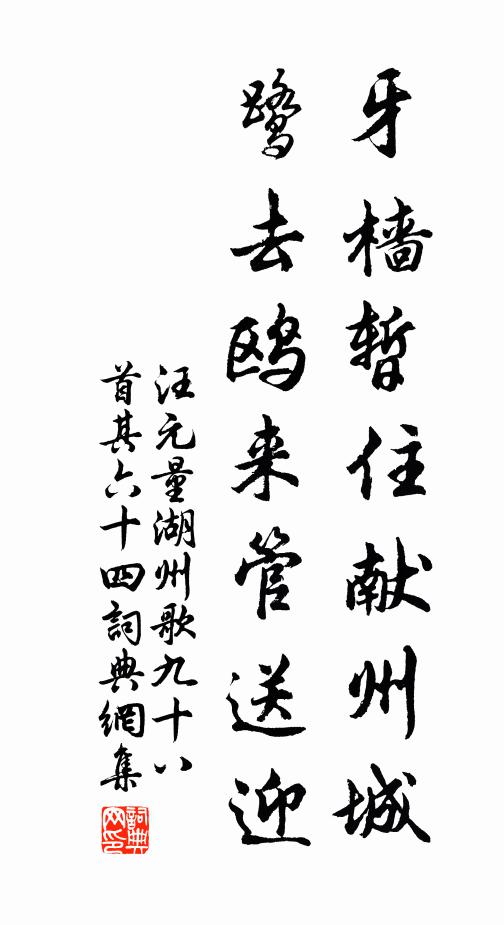 牙檣暫住献州城
鹭去鸥来管送迎
汪元量湖州歌九十八
首其六十四詞典網集
詞典
网印